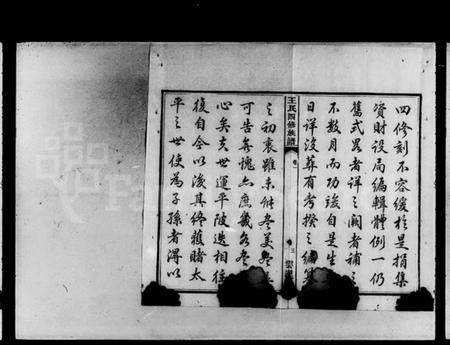 四修刻不容緩於是捐集
資財設局編輯體例一仍
舊式略者詳之闕者補之
不數月而功竣自是生
日詳沒葬有考揆之
王氏四修族譜
卷一
之初衷雖未能盡美盡
可告無愧亦庶幾各盡
心矣夫世運平陂遞相往
復自今以後其終獲睹太
平之世使為子孫者得以